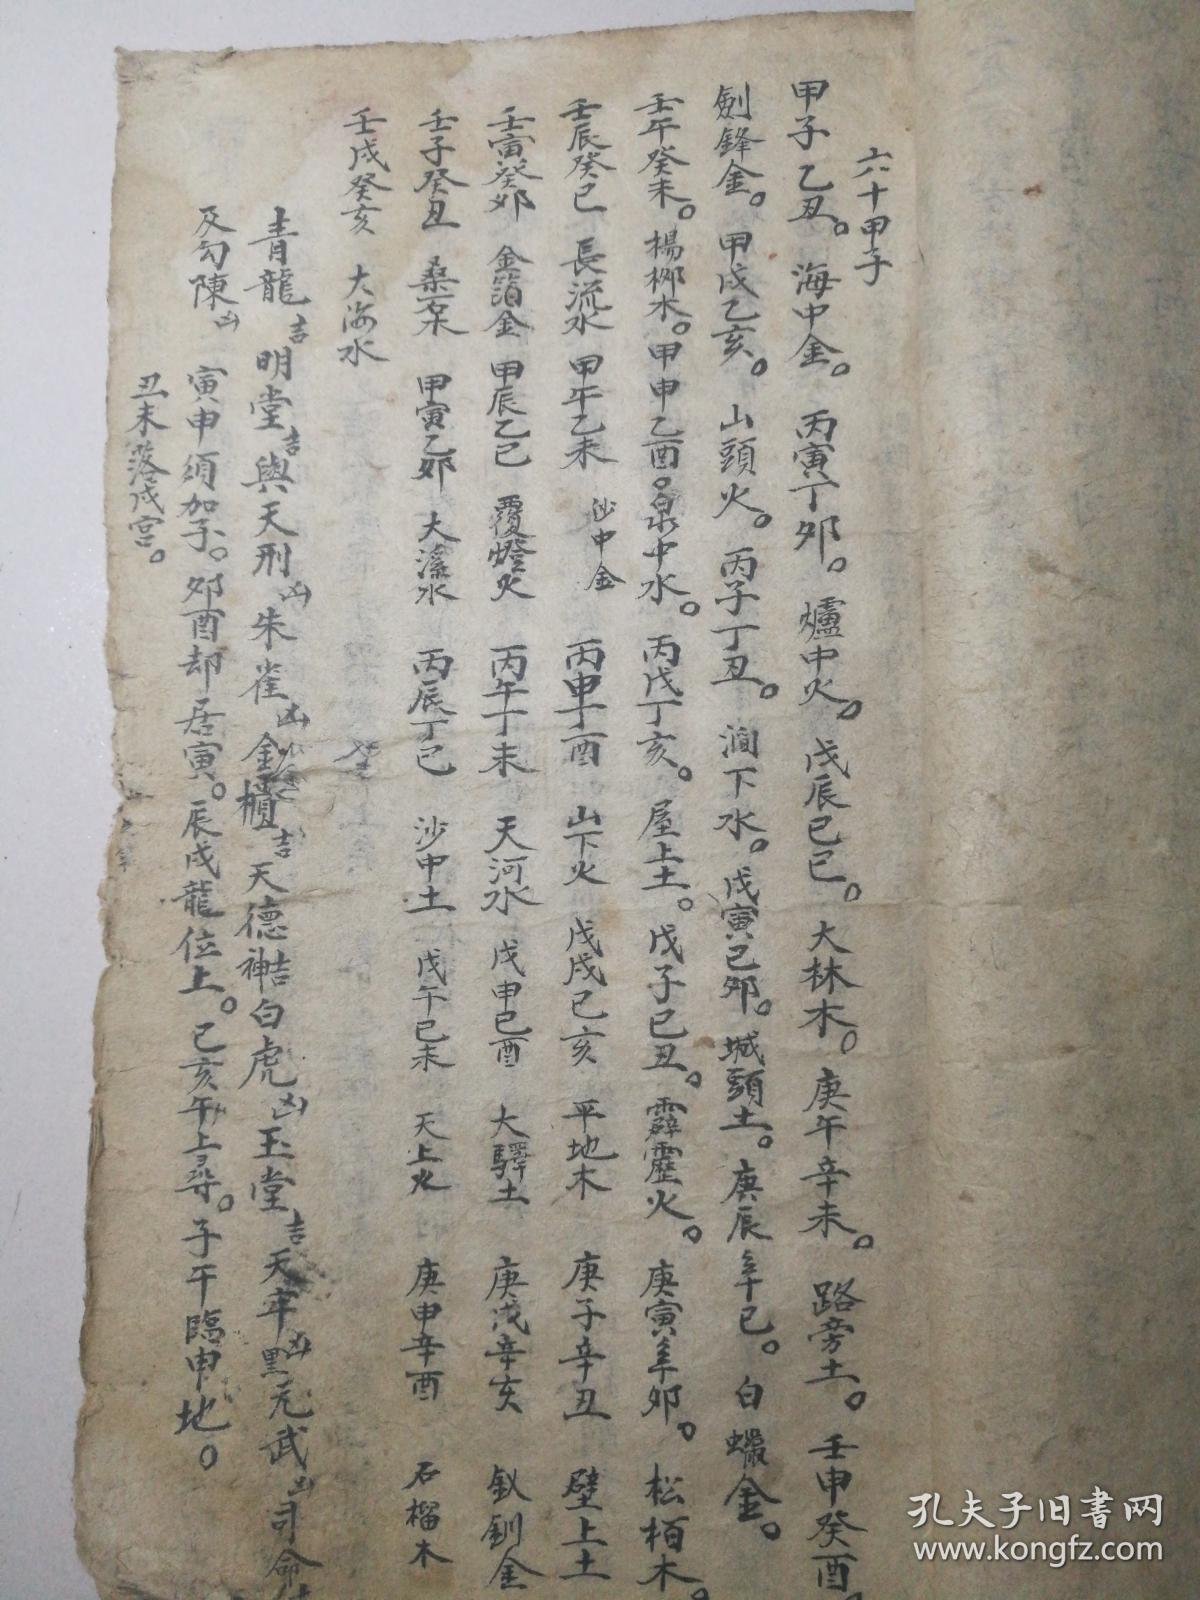 六十甲子
甲子乙丑。海中金。丙寅丁夘。爐中火。戊辰己巳。大林木。庚午辛未。路旁土。壬申癸酉。
劍鋒金。甲戌乙亥。山頭火。丙子丁丑。澗下水。戊寅己夘。城頭土。庚辰辛巳。白蠟金。
壬午癸未。楊柳木。甲申乙酉。泉中水。丙戌丁亥。屋上土。戊子己丑。霹靂火。庚寅辛夘。松栢木。
壬辰癸巳 長流水 甲午乙未 沙中金 丙申丁酉 山下火 戊戌己亥 平地木 庚子辛丑 壁上土
壬寅癸夘 金箔金 甲辰乙巳 覆燈火 丙午丁未 天河水 戊申己酉 大驛土 庚戌辛亥 釵釧金
壬子癸丑 桑柘木 甲寅乙夘 大溪水 丙辰丁巳 沙中土 戊午己未 天上火 庚申辛酉 石榴木
壬戌癸亥 大海水
青龍吉明堂吉與天刑凶朱雀凶金櫃吉天德神吉白虎凶玉堂吉天牢凶黑元武凶司命吉
及勾陳凶 寅申須加子。夘酉却居寅。辰戌龍位上。巳亥午上尋。子午臨申地。
丑未落戌宮。
孔夫子旧书网
www.kongfz.com